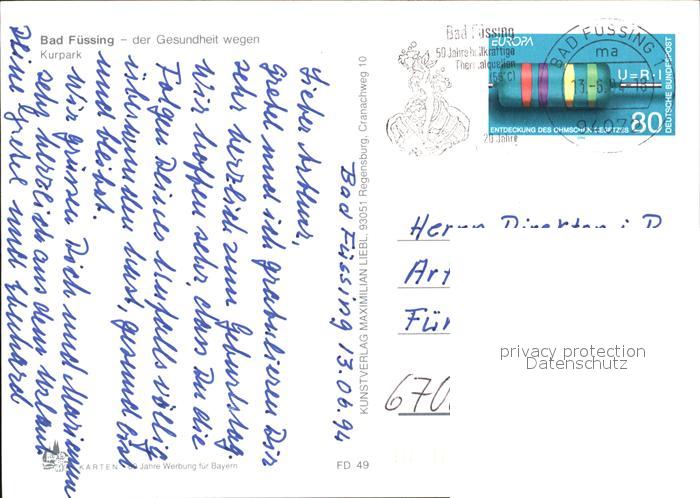 Bad Füssing – der Gesundheit wegen
Kurpark
Bad Füssing 13.06.94
Lieber Arthur,
Grete und ich gratulieren Dir
sehr herzlich zum Geburtstag.
Wir hoffen sehr, dass Du die
Folgen Deines Unfalls völlig
überwunden hast, gesund bist
und bleibst.
Wir grüssen Dich und
sehr herzlich aus dem Urlaub
Deine Grete und Eberhard
KARTEN · Jahre Werbung für Bayern
FD 49
KUNSTVERLAG MAXIMILIAN LIEBL, 93051 Regensburg, Cranachweg 10
Bad Füssing
50 Jahre heilkräftige
Thermalquellen
(56°C)
20 Jahre
BAD FÜSSING 1
ma
94072
EUROPA
U=R·I
DEUTSCHE BUNDESPOST
ENTDECKUNG DES OHMSCHEN GESETZES
80
Herrn Direktor i.R.
Art
Für
670
privacy protection
Datenschutz